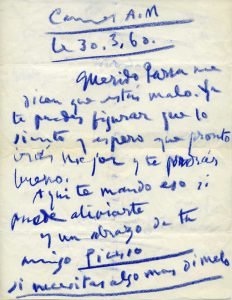 Cannes A.M
le 30.3.60.
Querido Parra me
dicen que estás malo. Ya
te puedes figurar que lo
siento y espero que pronto
irás mejor y te pondrás
bueno.
Aqui te mando eso si
puede aliviarte
y un abrazo de tu
amigo Picasso
si necesitas algo mas dimelo